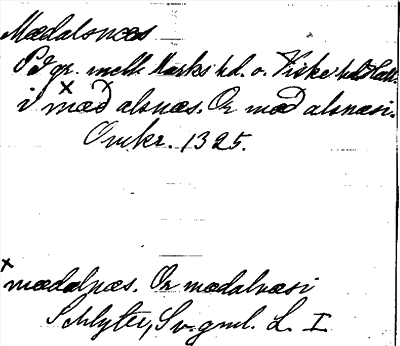 Mædalsnæs
På gr. mell. Marks hd. o. Viske hd. Hall.
i ˣmæð alsnæs. Or mæð alsnæsi.
Omkr. 1325.
ˣmædalnæs. Or mædalnæsi
Schlyter, Sv. gml. L. I